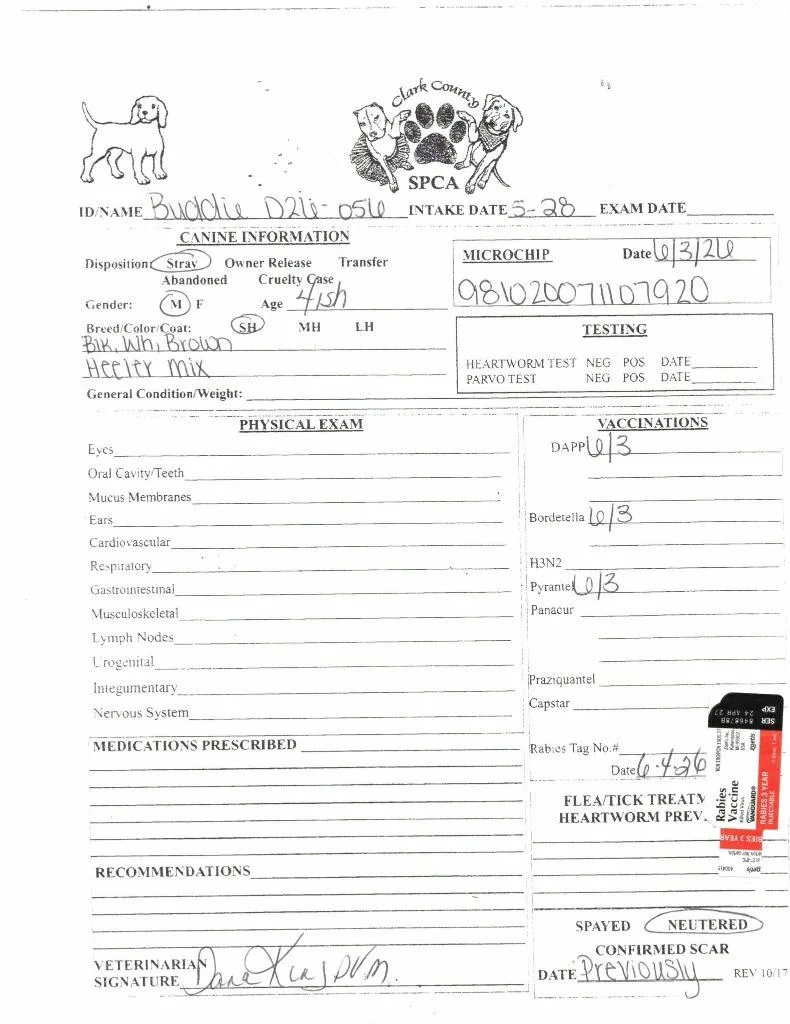 Clark County
SPCA
ID/NAME Buddie D26-056 INTAKE DATE 5-28 EXAM DATE
CANINE INFORMATION
Disposition: Stray Owner Release Transfer
Abandoned Cruelty Case
Gender: M F Age 4ish
Breed/Color/Coat: SH MH LH
Blk, Wh, Brown
Heeler mix
General Condition/Weight:
MICROCHIP Date 6/3/26
981020071107920
TESTING
HEARTWORM TEST NEG POS DATE
PARVO TEST NEG POS DATE
PHYSICAL EXAM
Eyes
Oral Cavity/Teeth
Mucus Membranes
Ears
Cardiovascular
Respiratory
Gastrointestinal
Musculoskeletal
Lymph Nodes
Urogenital
Integumentary
Nervous System
VACCINATIONS
DAPP 6/3
Bordetella 6/3
H3N2
Pyrantel 6/3
Panacur
Praziquantel
Capstar
Rabies Tag No.#
Date 6-4-26
EXP 24 APR 27
SER 846878B
Rabies
Vaccine
Killed Virus
VANGUARD
zoetis
RABIES 3 YEAR
INJECTABLE
MEDICATIONS PRESCRIBED
FLEA/TICK TREATM
HEARTWORM PREV.
RECOMMENDATIONS
SPAYED NEUTERED
CONFIRMED SCAR
DATE Previously REV 10/17
VETERINARIAN
SIGNATURE Dana King DVM.